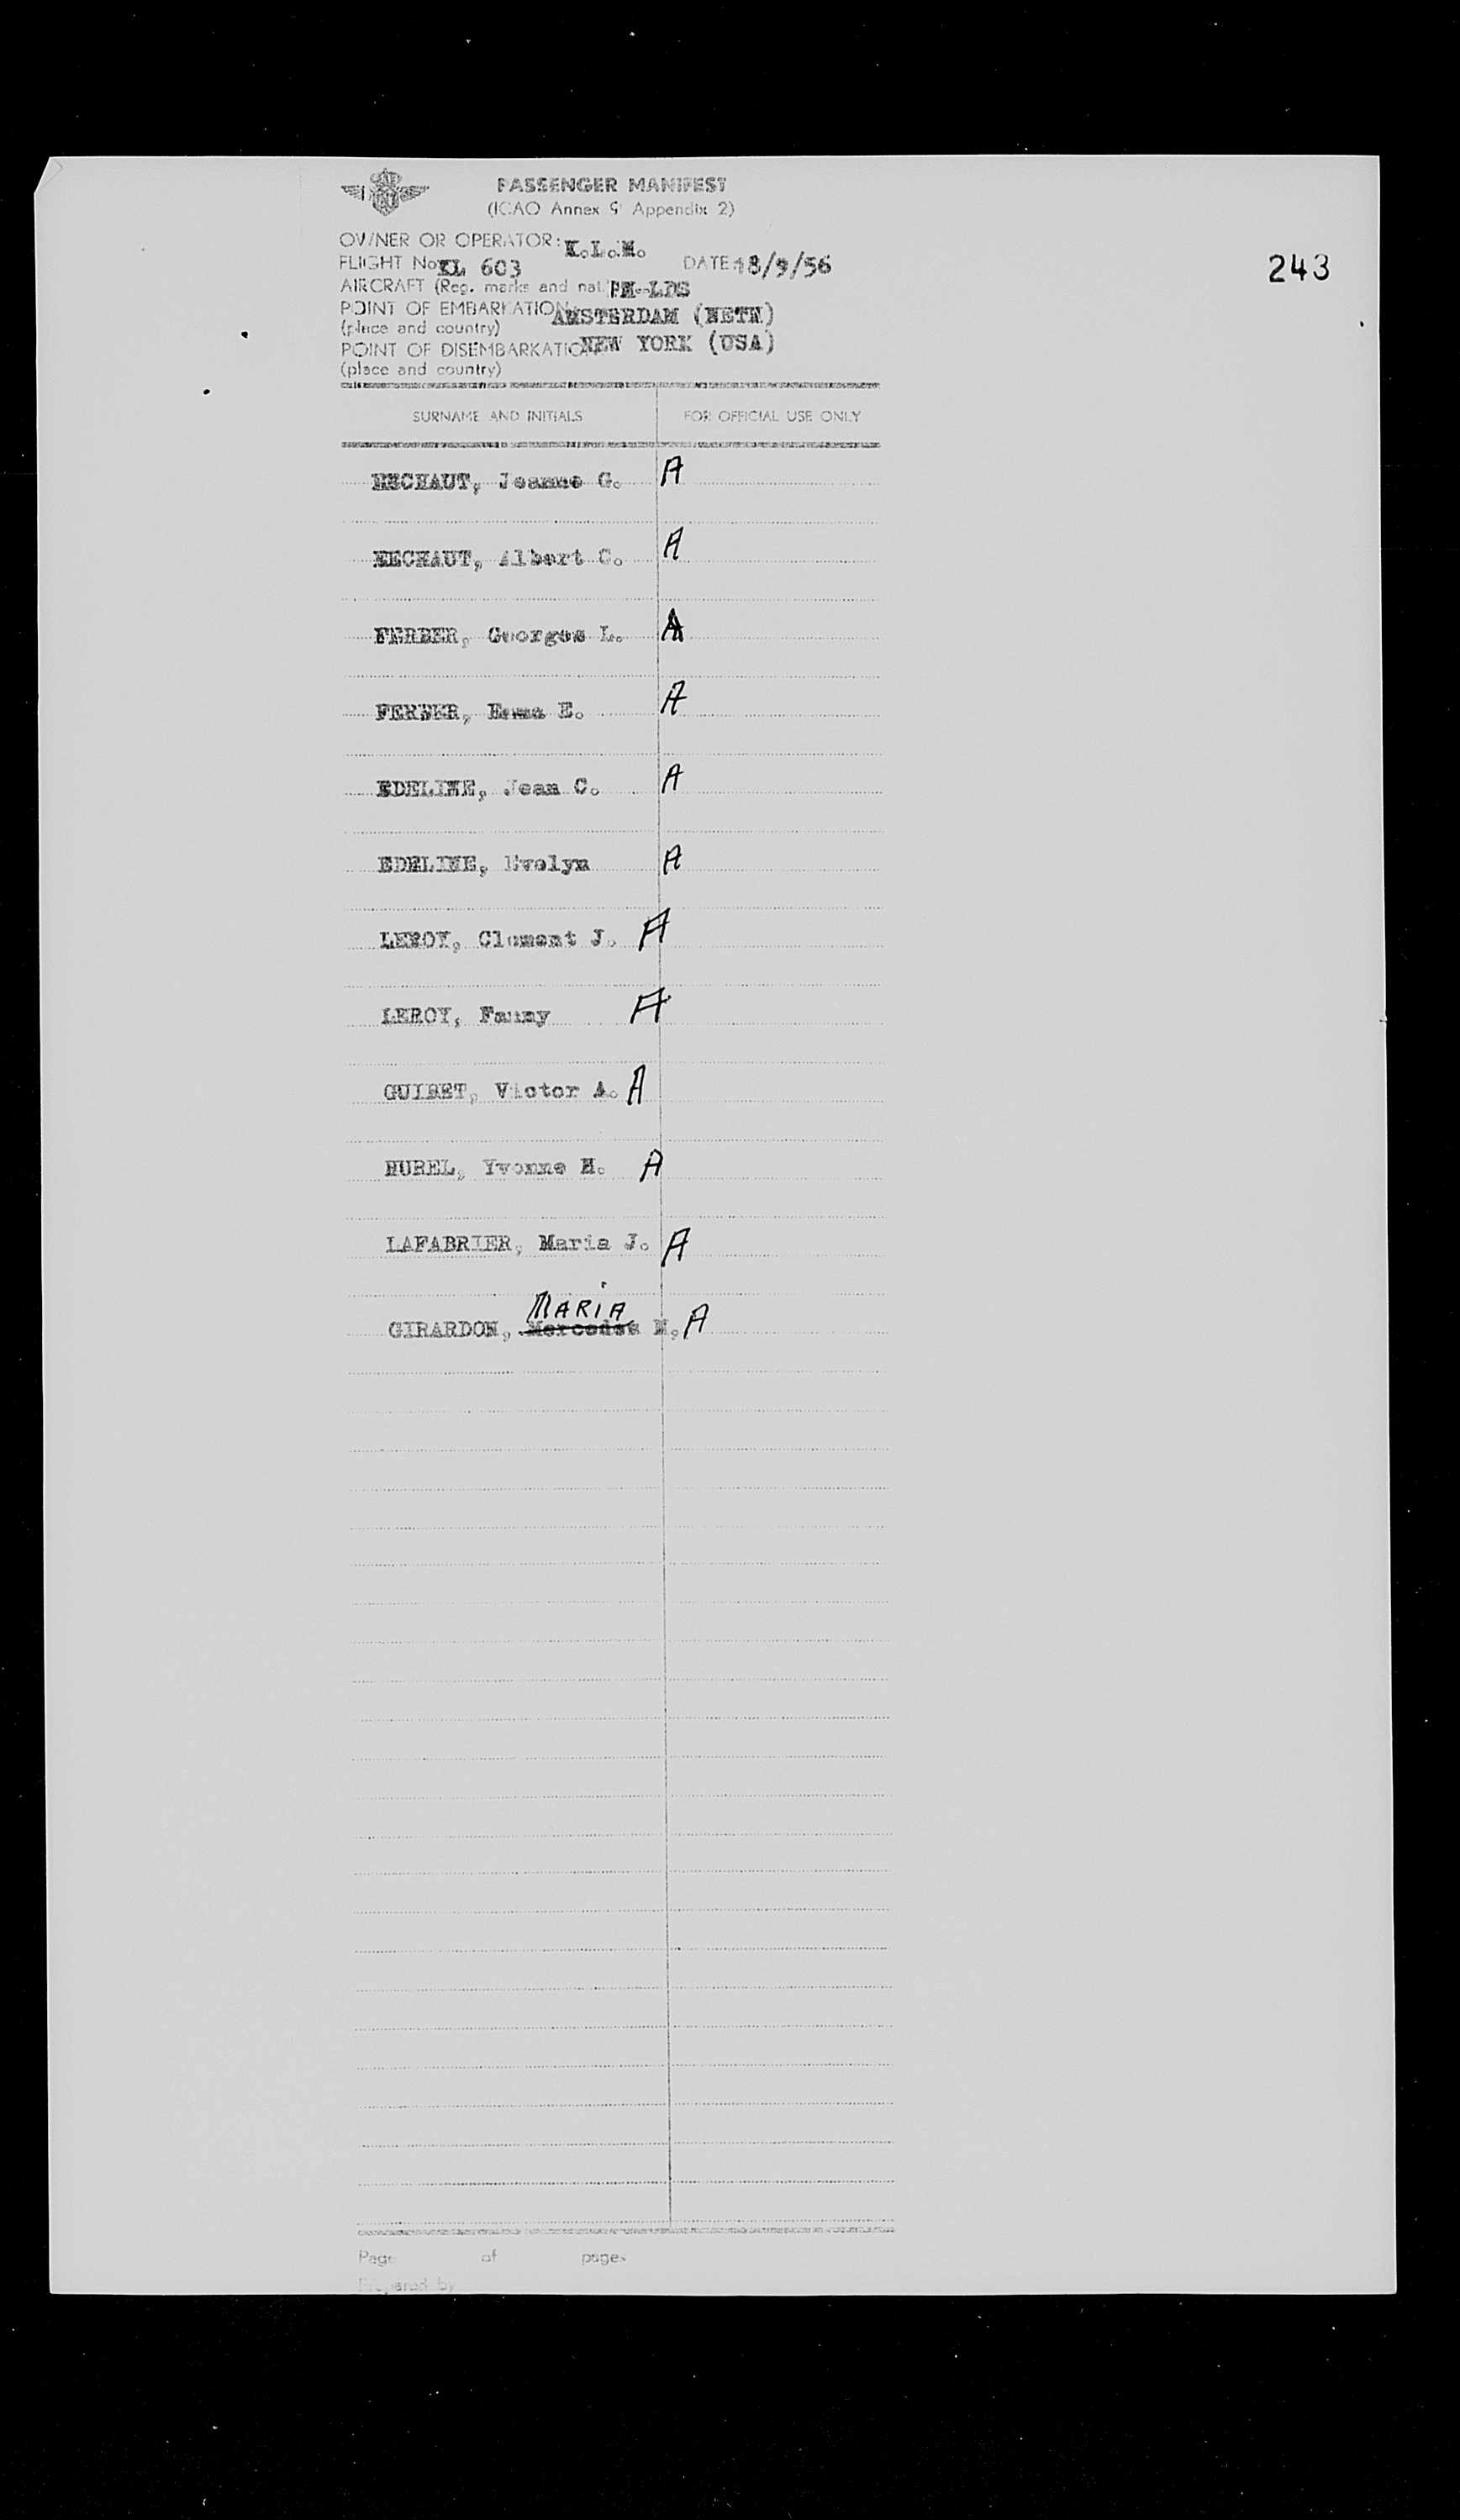 PASSENGER MANIFEST
(ICAO Annex 9 Appendix 2)
OWNER OR OPERATOR: K.L.M.
FLIGHT No. KL 603 DATE 18/9/56
243
AIRCRAFT (Reg. marks and nat.) PH-LDS
POINT OF EMBARKATION AMSTERDAM (NETH)
(place and country)
POINT OF DISEMBARKATION NEW YORK (USA)
(place and country)
SURNAME AND INITIALS FOR OFFICIAL USE ONLY
Jeanne G. A
Albert C. A
FERBER, Georges L. A
FERBER, Emma E. A
EDELINE, Jean C. A
EDELINE, Evelyn A
LEROY, Clement J. A
LEROY, Fanny A
GUIBET, Victor A. A
HUREL, Yvonne H. A
LAFABRIER, Maria J. A
MARIA
GIRARDON, Mercedes M. A
Page of pages
Prepared by